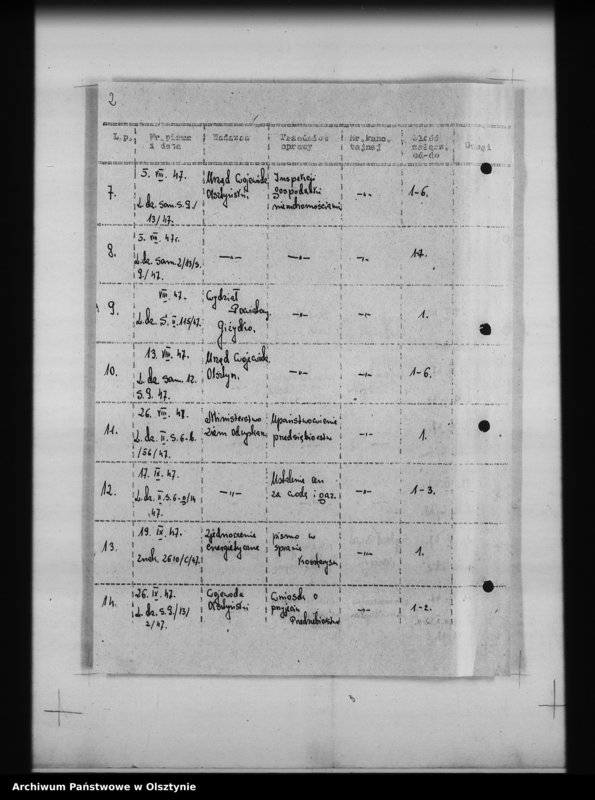 2
L.p. Nr. pisma i data Nadawca Przedmiot sprawy Nr. kanc. tajnej Ilość załącz. od-do Uwagi
7. 5. VIII. 47. Urząd Wojewódz. Inspekcji
Olsztyński. gospodarki -"- 1-6.
L. dz. sam. S.P./ nieruchomościami
13/47.
8. 5. VIII. 47r.
L. dz. sam. 2/13/S. -"- -"- -"- 1-7.
P./47.
9. VIII. 47. Wydział
Powiatowy -"- -"- 1.
L. dz. S. II. 115/47. Giżycko.
10. 13. VIII. 47. Urząd Wojewódz.
Olsztyn. -"- -"- 1-6.
L. dz. sam. 12.
S.P. 47.
11. 26. VIII. 47. Ministerstwo Upaństwowienie
Ziem Odzyskan. przedsiębiorstw -"- 1.
L. dz. II. S. 6-b.
/56/47.
12. 17. IX. 47. Ustalenie cen
L. dz. II. S. 6-g/14 -"- za wodę i gaz. -"- 1-3.
47.
13. 19. IX. 47. Zjednoczenie pismo w
energetyczne sprawie -"- 1.
Znak. 2610/C/47.
14. 26. IX. 47. Wojewoda Wniosek o
Olsztyński przejęcie -"- 1-2.
L. dz. S.P./13/ Przedsiębiorstw
2/47.
Archiwum Państwowe w Olsztynie